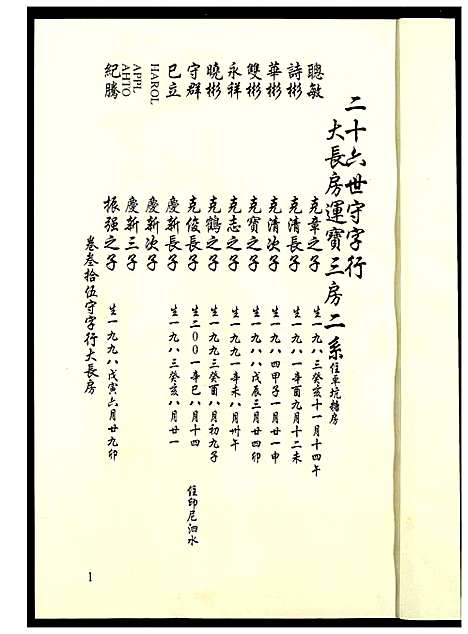 二十六世守字行
大長房運寶三房二系住平坑糖房
聰敏 克章之子 生一九八三癸亥十一月十四午
詩彬 克清長子 生一九八一辛酉九月十二未
華彬 克清次子 生一九八四甲子一月廿一申
雙彬 克寶之子 生一九八八戊辰三月廿四卯
永祥 克志之子 生一九九一辛未八月卅午
曉彬 克鶴之子 生一九九三癸酉八月初九子
守群 克俊長子 生二00一辛巳八月十四 住印尼泗水
已立 慶新長子 生一九八三癸亥八月廿一
HAROL 慶新次子
APPL AHTO 慶新三子
紀騰 振强之子 生一九九八戊寅六月廿九卯
卷叁拾伍守字行大長房
1